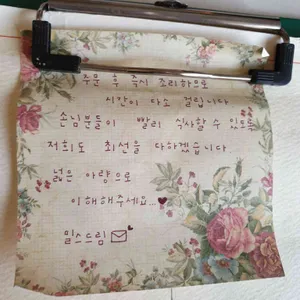 주문 후 즉시 조리하므로
시간이 다소 걸립니다
손님분들이 빨리 식사할 수 있도록
저희도 최선을 다하겠습니다
넓은 아량으로
이해해주세요...
밀스드림